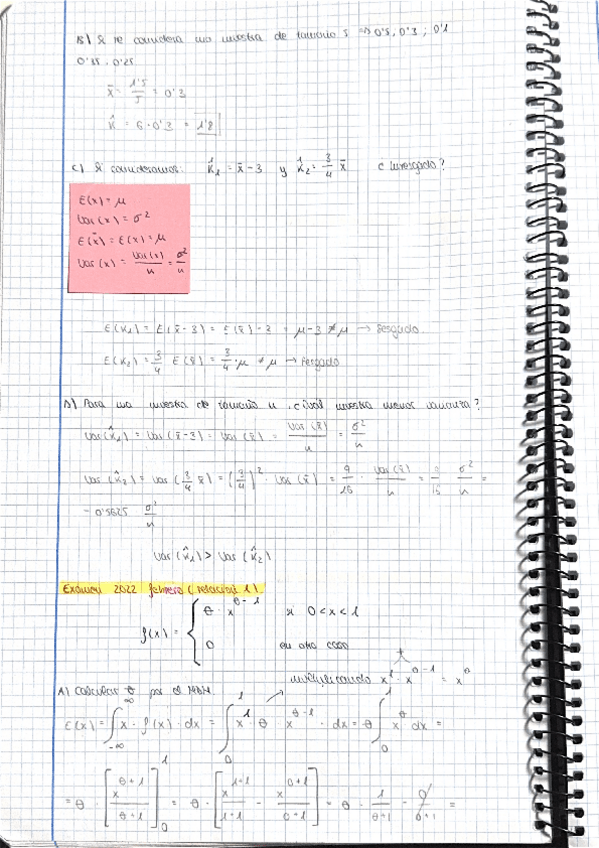 B) Si se considera una muestra de tamaño 5 => 0'5, 0'3 ; 0'1
0'35, 0'25
x̄ = 1'5/5 = 0'3
k̂ = 6·0'3 = 1'8
C) Si consideramos: k̂₁ = x̄ - 3 y k̂₂ = 3/4 x̄ ¿Insesgado?
E(x) = μ
Var(x) = σ²
E(x̄) = E(x) = μ
Var(x) = Var(x)/n = σ²/n
E(k₁) = E(x̄ - 3) = E(x̄) - 3 = μ - 3 ≠ μ → Sesgado.
E(k₂) = 3/4 E(x̄) = 3/4 · μ ≠ μ → Sesgado
D) Para una muestra de tamaño n, ¿cuál muestra menos varianza?
Var(k̂₁) = Var(x̄ - 3) = Var(x̄) = Var(x̄)/n = σ²/n
Var(k̂₂) = Var(3/4 x̄) = (3/4)² · Var(x̄) = 9/16 · Var(x̄)/n = σ²/n =
= 0'5625 σ²/n
Var(k̂₁) > Var(k̂₂)
Examen 2022 febrero (relación 1).
f(x) = { θ · x^(θ-1) si 0 < x < 1
0 en otro caso
multiplicando x¹ · x^(θ-1) = x^θ
A) Calcular θ por el
E(x) = ∫_{-∞}^{∞} x · f(x) · dx = ∫_0^1 x¹ · θ x^(θ-1) · dx = θ ∫_0^1 x^θ dx =
= θ · [x^(θ+1)/(θ+1)]_0^1 = θ · [ - ] = θ · 1/(θ+1) - 0/(θ+1) =